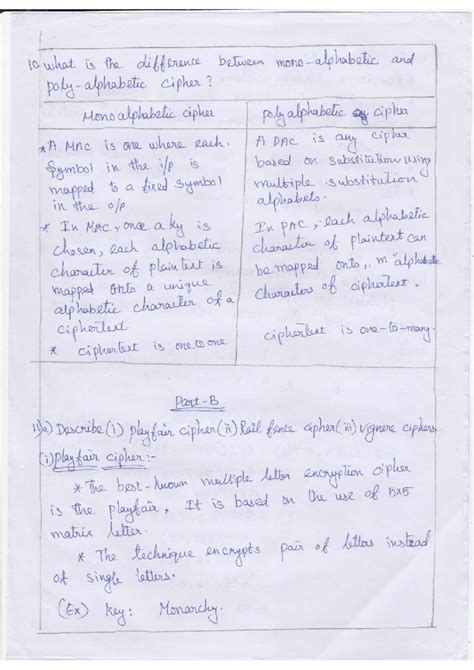 10. What is the difference between mono-alphabetic and
poly-alphabetic cipher?
Monoalphabetic cipher
* A MAC is one where each
symbol in the i/p is
mapped to a fixed symbol
in the o/p
* In MAC, once a ky is
chosen, each alphabetic
character of plaintext is
mapped onto a unique
alphabetic character of a
ciphertext.
* ciphertext is one to one
polyalphabetic cipher
A PAC is any cipher
based on substitution using
multiple substitution
alphabets.
In PAC, each alphabetic
character of plaintext can
be mapped onto, m "alphabetic
characters of ciphertext.
ciphertext is one-to-many.
Part-B
11) a) Describe (i) playfair cipher (ii) Rail fence cipher (iii) vignere ciphers
(i) Playfair cipher:-
* The best-known multiple letter encryption cipher
is the playfair, It is based on the use of 5x5
matrix letter.
* The technique encrypts pair of letters instead
of single letters.
(Ex) key: Monarchy.